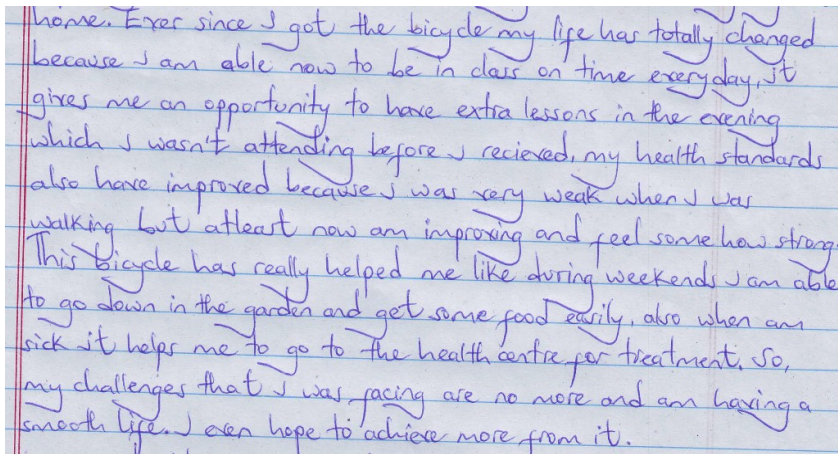 home. Ever since I got the bicycle my life has totally changed
because I am able now to be in class on time everyday, it
gives me an opportunity to have extra lessons in the evening
which I wasn't attending before I recieved, my health standards
also have improved because I was very weak when I was
walking but atleast now am improving and feel some how strong.
This bicycle has really helped me like during weekends I am able
to go down in the garden and get some food easily, also when am
sick it helps me to go to the health centre for treatment. So,
my challenges that I was facing are no more and am having a
smooth life. I even hope to achieve more from it.